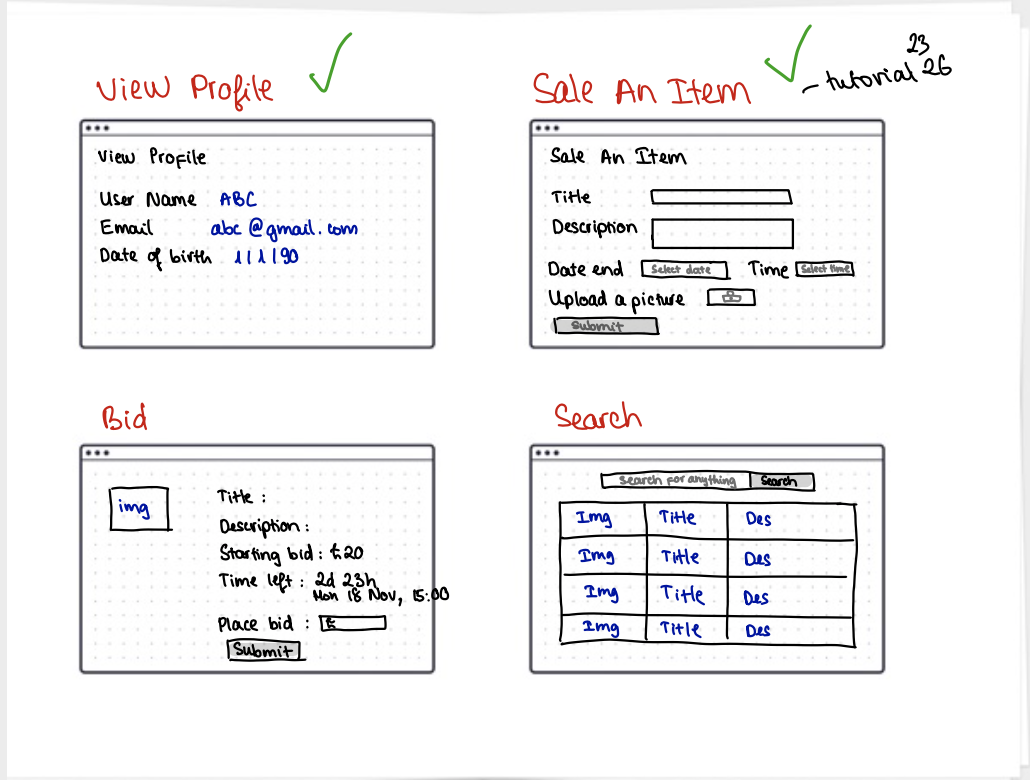 View Profile
View Profile
User Name ABC
Email abc@gmail.com
Date of birth 1/1/90
Sale An Item
23
- tutorial 26
Sale An Item
Title
Description
Date end Select date Time Select time
Upload a picture
Submit
Bid
img
Title :
Description :
Starting bid : £20
Time left : 2d 23h
Mon 18 Nov, 15:00
Place bid : £
Submit
Search
Search for anything Search
Img Title Des
Img Title Des
Img Title Des
Img Title Des